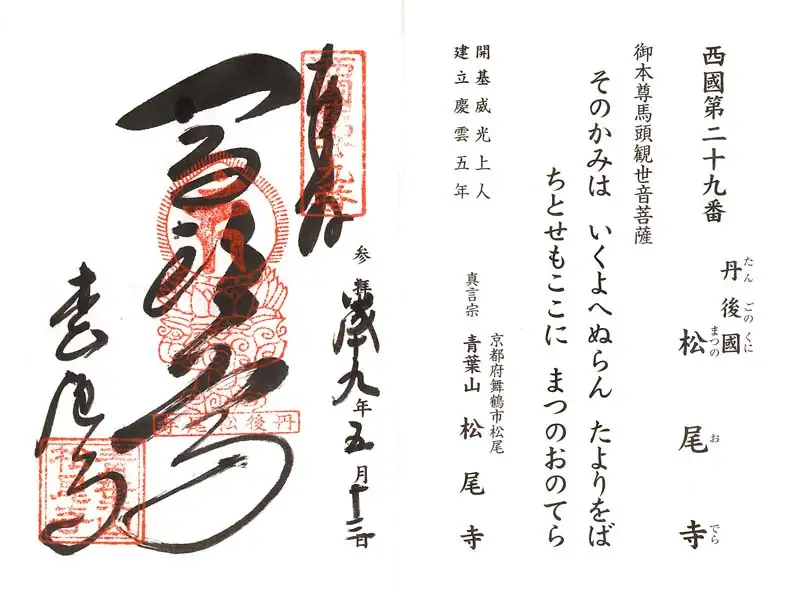 西國第二十九番
丹後國
たんごのくに
松尾寺
まつのおでら
御本尊馬頭観世音菩薩
そのかみは いくよへぬらん たよりをば
ちとせもここに まつのおのてら
開基威光上人
建立慶雲五年
京都府舞鶴市松尾
真言宗 青葉山 松尾寺
参拝 平成十九年五月十三日
丹後松尾寺